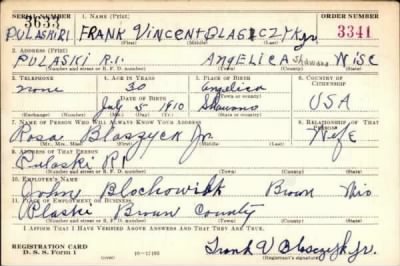 SERIAL NUMBER 1. NAME (Print) ORDER NUMBER
3633
PULASKI R1 FRANK VINCENT BLASZCZYK Jr. 3341
(First) (Middle) (Last)
2. ADDRESS (Print)
PULASKI R.1. ANGELICA Shawano WISC
(Number and street or R. F. D. number) (Town) (County) (State)
3. TELEPHONE 4. AGE IN YEARS 5. PLACE OF BIRTH 6. COUNTRY OF CITIZENSHIP
none 30 Angelica
DATE OF BIRTH (Town or county)
July 5 1910 Shawano USA
(Exchange) (Number) (Mo.) (Day) (Yr.) (State or country)
7. NAME OF PERSON WHO WILL ALWAYS KNOW YOUR ADDRESS 8. RELATIONSHIP OF THAT PERSON
Rosa Blaszyck Jr. Wife
(Mr., Mrs., Miss) (First) (Middle) (Last)
9. ADDRESS OF THAT PERSON
Pulaski R1
(Number and street or R. F. D. number) (Town) (County) (State)
10. EMPLOYER'S NAME
John Blochowiak Brown Wis
11. PLACE OF EMPLOYMENT OR BUSINESS
Plaski Brown County
(Number and street or R. F. D. number) (Town) (County) (State)
I AFFIRM THAT I HAVE VERIFIED ABOVE ANSWERS AND THAT THEY ARE TRUE.
REGISTRATION CARD
D. S. S. Form 1 16—17105 Frank V Blasczyk Jr.
(Registrant's signature)